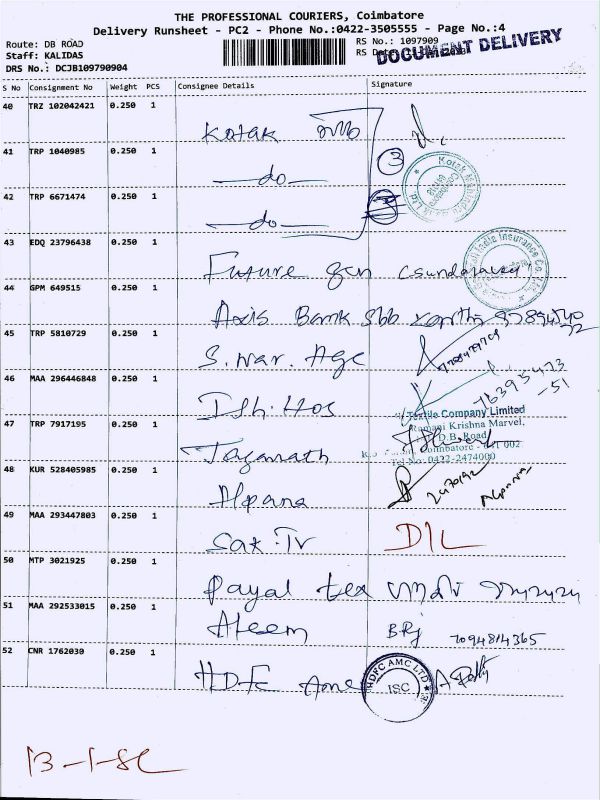 THE PROFESSIONAL COURIERS, Coimbatore
Delivery Runsheet - PC2 - Phone No.:0422-3505555 - Page No.:4
Route: DB ROAD
RS No.: 1097909
DOCUMENT DELIVERY
Staff: KALIDAS
RS Date:
DRS No.: DCJB109790904
S No Consignment No Weight PCS Consignee Details Signature
40 TRZ 102042421 0.250 1
Kotak
41 TRP 1040985 0.250 1
3
—do—
42 TRP 6671474 0.250 1
—do—
43 EDQ 23796438 0.250 1
Future gen
44 GPM 649515 0.250 1
Axis Bank
45 TRP 5810729 0.250 1
S. war. Age
46 MAA 296446848 0.250 1
Ish. Hos
76395473
-51
Textile Company Limited
Ramani Krishna Marvel,
D.B. Road,
Coimbatore - 641 002
Tel No: 0422-2474000
47 TRP 7917195 0.250 1
Jaganath
48 KUR 528405985 0.250 1
Alpana
2470192
49 MAA 293447803 0.250 1
Sax. Tv DIL
50 MTP 3021925 0.250 1
Payal tex
51 MAA 292533015 0.250 1
Aleem BRJ 7094814365
52 CNR 1762030 0.250 1
HDFC Amc
HDFC AMC LTD
ISC